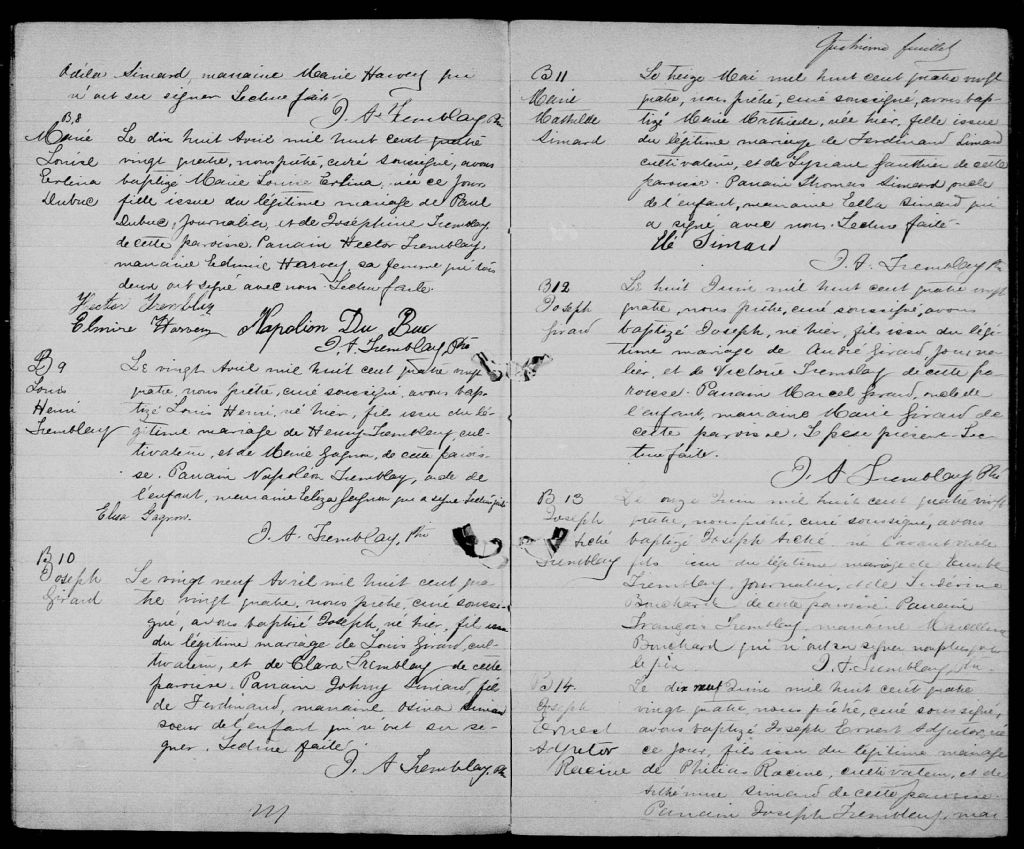 Odila Simard, marraine Marie Harvey qui
n'ont su signer Lecture faite
J. A. Tremblay, Ptre
B,8
Marie
Louise
Erlina
Dubuc
Le dix huit Avril mil huit cent quatre
vingt quatre, nous prêtre, curé soussigné, avons
baptizé Marie Louise Erlina, née ce jour
fille issue du légitime mariage de Paul
Dubuc, Journalier, et de Joséphine Tremblay
de cette paroisse. Parrain Hector Tremblay,
marraine Harvey, sa femme qui tous
deux ont signé avec nous. Lecture faite.
Hector Tremblay
Elmire Harvey Napoléon Du Buc
J. A. Tremblay, Ptre
B 9
Louis
Henri
Tremblay
Le vingt Avril mil huit cent quatre vingt
quatre, nous prêtre, curé soussigné, avons bap-
tizé Louis Henri, né hier, fils issu du lé-
gitime mariage de Henry Tremblay, cul-
tivateur, et de Marie Gagnon, de cette parois-
se. Parrain Napoléon Tremblay, de
l'enfant, marraine Eliza Gagnon qui a signé Lecture faite
Elisa Gagnon.
J. A. Tremblay, Ptre
B 10
Joseph
Girard
Le vingt neuf Avril mil huit cent qua
tre vingt quatre, nous prêtre, curé soussi-
gné, avons baptisé Joseph, né hier, fils issu
du légitime mariage de Louis Girard, cul-
tivateur, et de Clara Tremblay de cette
paroisse. Parrain Johny Simard, fils
de Ferdinand, marraine Osina Simard
soeur de l'enfant qui n'ont su si-
gner. Lecture faite.
J. A Tremblay, Ptre
Quatrième feuillet
B 11
Marie
Mathilde
Simard
Le treize Mai mil huit cent quatre vingt
quatre, nous prêtre, curé soussigné, avons bap-
tizé Marie Mathilde, née hier, fille issue
du légitime mariage de Ferdinand Simard
cultivateur, et de Lysiane Gauthier de cette
paroisse. Parrain Thomas Simard oncle
de l'enfant, marraine Ella Simard qui
a signé avec nous. Lecture faite.
Simard
J. A. Tremblay Ptre
B12
Joseph
Girard
Le huit Juin mil huit cent quatre vingt
quatre, nous prêtre, curé soussigné, avons
baptizé Joseph, né hier, fils issu du légi-
time mariage de André Girard, journa-
lier, et de Victorie Tremblay de cette pa-
roisse. Parrain Marcel Girard, oncle de
l'enfant, marraine Marie Girard de
cette paroisse. Le père présent. Lec-
ture faite.
J. A Tremblay Ptre
B 13
Joseph
Arché
Tremblay
Le onze Juin mil huit cent quatre vingt
quatre, nous prêtre, curé soussigné, avons
baptizé Joseph Arché né l'avant veille
fils issu du légitime mariage de
Tremblay, journalier, et de
Bouchard de cette paroisse. Parrain
François Tremblay, marraine Marcelline
Bouchard qui n'ont su signer non plus que
le père J. A. Tremblay, Ptre
B 14.
Joseph
Ernest
Adjutor
Racine
Le dix neuf Juin mil huit cent quatre
vingt quatre, nous prêtre, curé soussigné,
avons baptizé Joseph Ernest Adjutor, né
ce jour, fils issu du légitime mariage
de Philias Racine, cultivateur, et de
Simard de cette paroisse.
Parrain Joseph Tremblay, mar